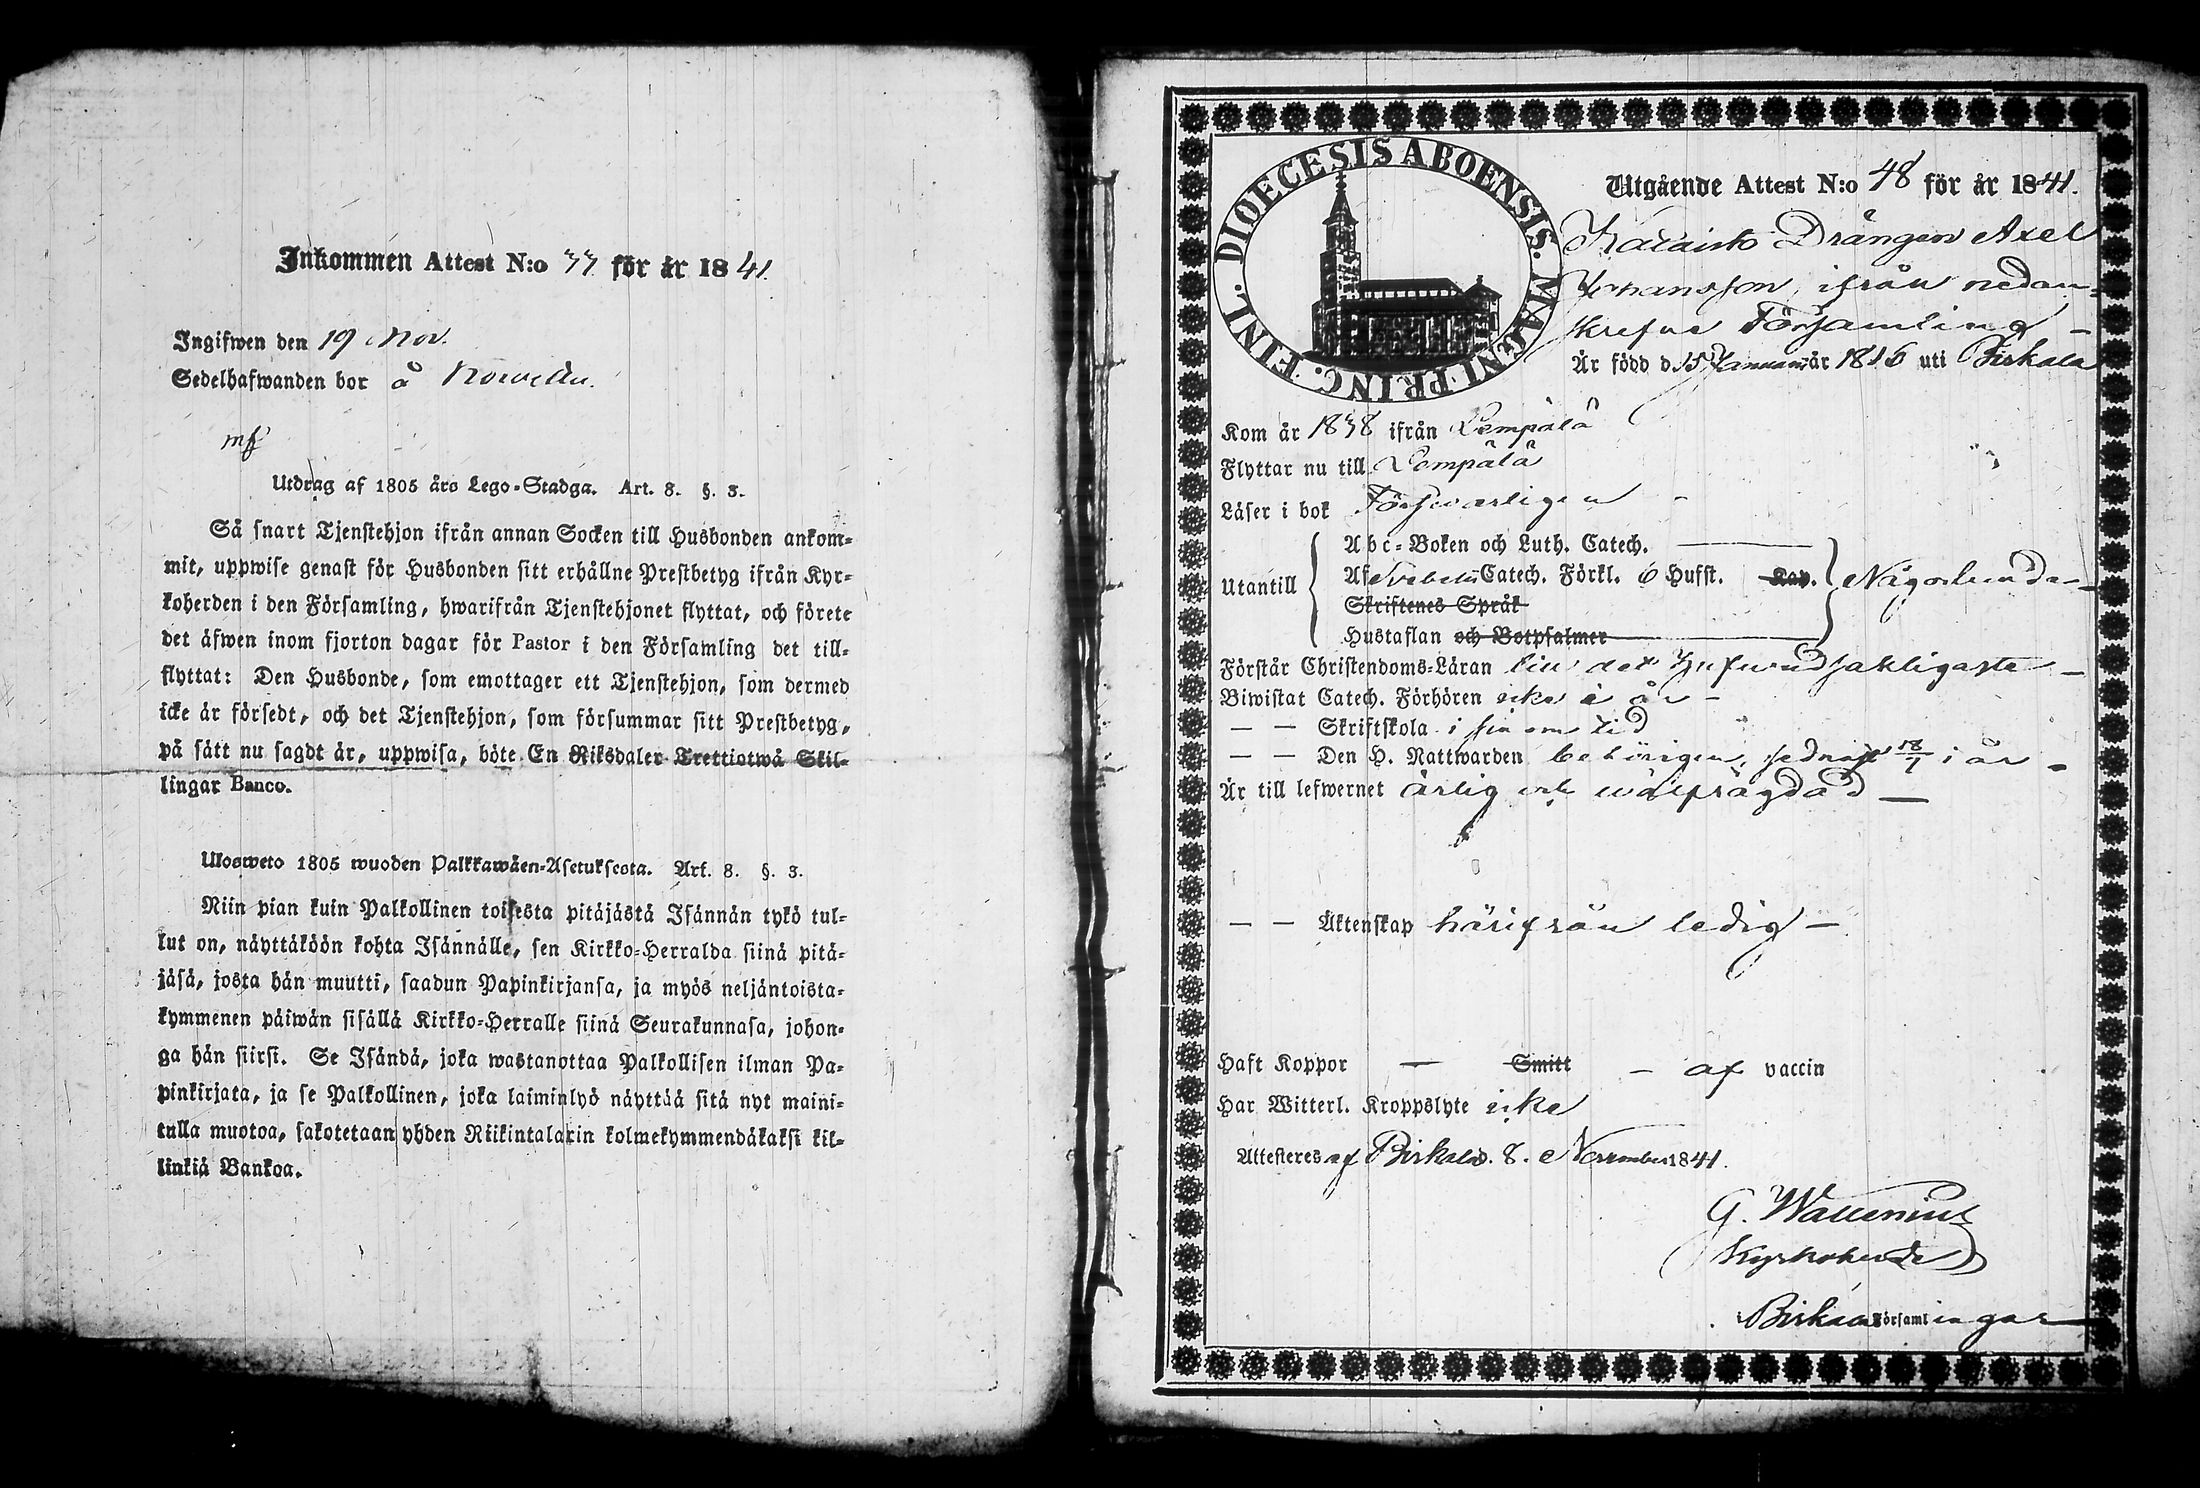 Inkommen Attest N:o 33 för år 1841.
Ingifwen den 19 Nov.
Sedelhafwanden bor å
mf
Utdrag af 1805 års Lego-Stadga. Art. 8. §. 3.
Så snart Tjenstehjon ifrån annan Socken till Husbonden ankom-
mit, uppwise genast för Husbonden sitt erhållne Prestbetyg ifrån Kyr-
koherden i den Församling, hwarifrån Tjenstehjonet flyttat, och förete
det äfwen inom fjorton dagar för Pastor i den Församling det till-
flyttat: Den Husbonde, som emottager ett Tjenstehjon, som dermed
icke är försedt, och det Tjenstehjon, som försummar sitt Prestbetyg,
på sätt nu sagdt är, uppwisa, böte En Riksdaler Trettiotwå Skil-
lingar Banco.
Ulosweto 1805 wuoden Palkkawäen-Asetuksesta. Art. 8. §. 3.
Niin pian kuin Palkollinen toisesta pitäjästä Isännän tykö tul-
lut on, näyttäköön kohta Isännälle, sen Kirkko-Herralda siinä pitä-
jäsä, josta hän muutti, saadun Papinkirjansa, ja myös neljäntoista-
kymmenen päiwän sisällä Kirkko-Herralle siinä Seurakunnasa, johon-
ga hän siirsi. Se Isändä, joka wastanottaa Palkollisen ilman Pa-
pinkirjata, ja se Palkollinen, joka laiminlyö näyttää sitä nyt maini-
tulla muotoa, sakotetaan yhden Riikintalarin kolmekymmendäkaksi kil-
linkiä Bankoa.
DIOECESIS ABOENSIS. MAGNI PRINC. FINL.
Utgående Attest N:o 48 för år 1841.
Drängen Axel
Johansson, ifrån nedan-
skrefne Församling –
Är född d. 15 Januari år 1816 uti Birkala
Kom år 1838 ifrån Lempälä
Flyttar nu till Lempälä
Läser i bok Förswarligen –
Abc-Boken och Luth. Catech.
Utantill Af Svebelii Catech. Förkl. 6 Hufst. Kap. Någorlunda –
Skriftenes Språk
Hustaflan och Botpsalmer
Förstår Christendoms-Läran till det Hufwudsakligaste –
Biwistat Catech. Förhören icke i år –
– – Skriftskola i sin tid
– – Den H. Nattwarden behörigen, sednast 18/7 i år –
Är till lefwernet ärlig och wälfrägdad –
– – Äktenskap härifrån ledig –
Haft Koppor – Smitt – af vaccin
Har Witterl. Kroppslyte icke
Attesteres af Birkala d. 8. November 1841.
G. Wallenius
Kyrkoherde
i Birkala Församlingar